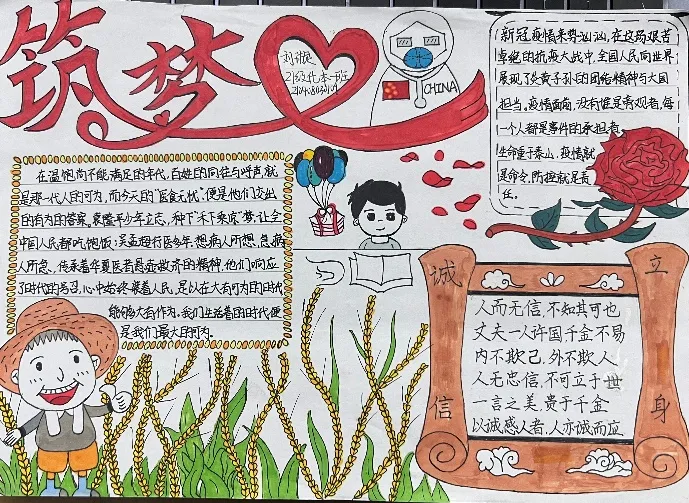 筑梦
CHINA
新冠疫情来势汹汹,在这场艰苦
卓绝的抗疫大战中,全国人民向世界
展现了炎黄子孙的团结精神与大国
担当。疫情面前,没有谁是旁观者,每
一个人都是事件的承担者。
生命重于泰山,疫情就
是命令,防控就是责
任。
在温饱尚不能满足的年代,百姓的向往与呼声,就
是那一代人的可为,而今天的“医食无忧”便是他们交出
的有为的答案。袁隆平少年立志,种下“禾下乘凉”梦,让全
中国人民都吃饱饭;吴孟超行医多年,想病人所想,急病
人所急,传承着华夏医者悬壶救济的精神。他们响应
了时代的号召,心中始终装着人民,是以在大有可为的时代
能够大有作为。我们生活着的时代便
是我们最大的可为。
诚信
立身
人而无信,不知其可也
丈夫一人许国千金不易
内不欺己,外不欺人
人无忠信,不可立于世
一言之美,贵于千金
以诚感人者,人亦诚而应